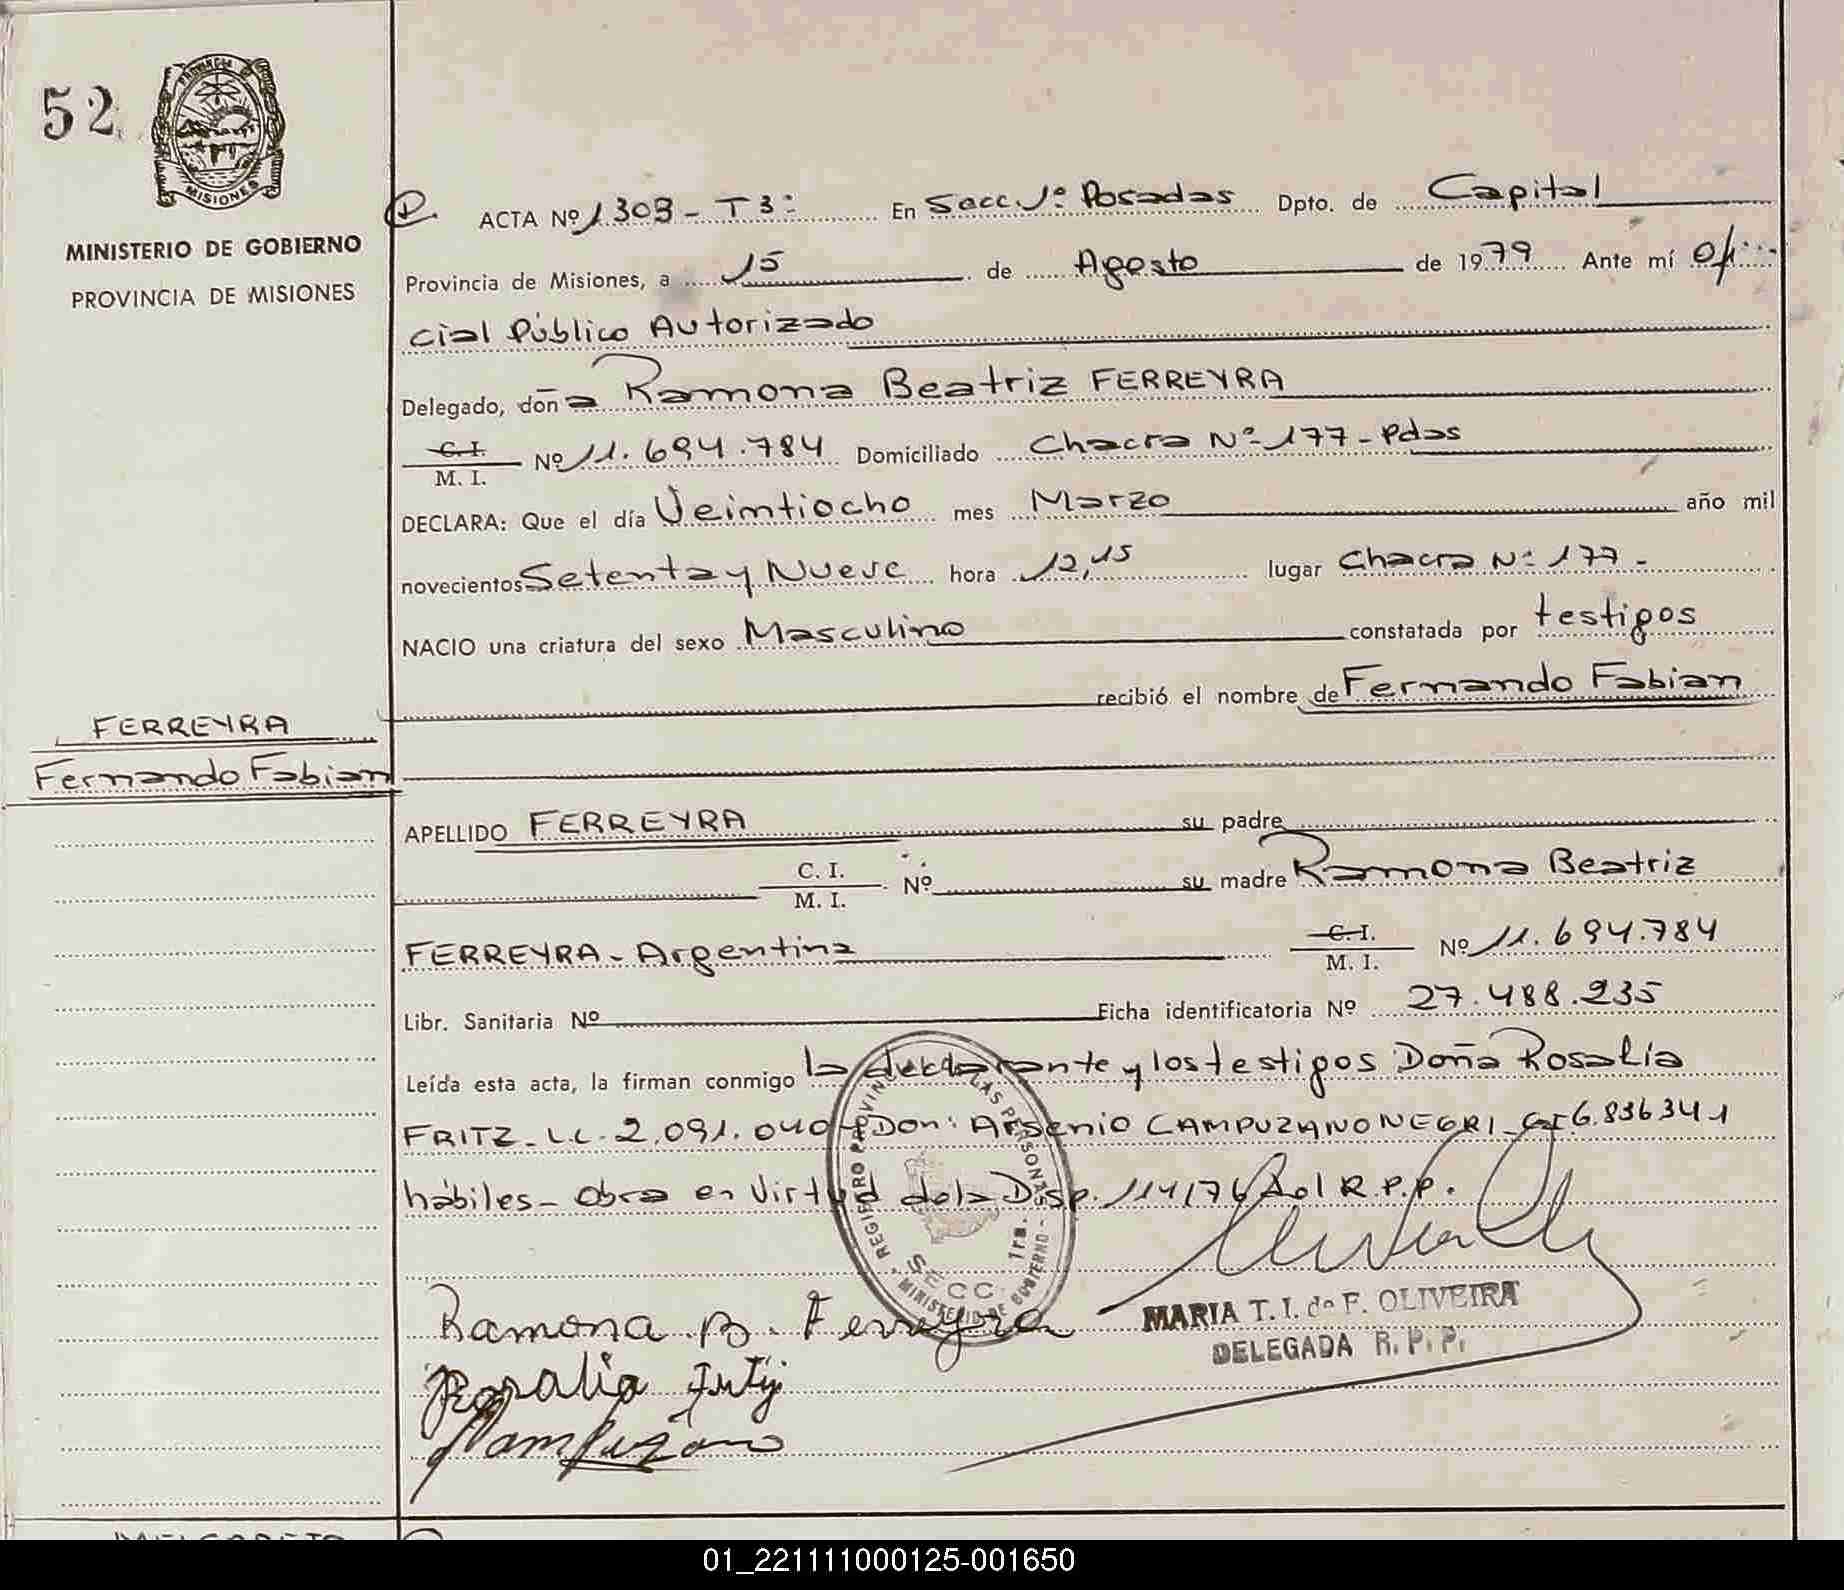 52
PROVINCIA DE
MISIONES
MINISTERIO DE GOBIERNO
PROVINCIA DE MISIONES
ACTA Nº 1303 - T 3º En Secc. 1º Posadas Dpto. de Capital
Provincia de Misiones, a 15 de Agosto de 1979 Ante mí Ofi
cial Público Autorizado
Delegado, doña Ramona Beatriz FERREYRA
C. I.
M. I. Nº 11.694.784 Domiciliado Chacra Nº 177 - Pdas
DECLARA: Que el día Veintiocho mes Marzo año mil
novecientos Setenta y Nueve hora 12,15 lugar Chacra Nº 177 -
NACIO una criatura del sexo Masculino constatada por testigos
recibió el nombre de Fernando Fabian
FERREYRA
Fernando Fabian
APELLIDO FERREYRA su padre
C. I.
M. I. Nº su madre Ramona Beatriz
FERREYRA - Argentina C. I.
M. I. Nº 11.694.784
Libr. Sanitaria Nº Ficha identificatoria Nº 27.488.235
Leída esta acta, la firman conmigo la declarante y los testigos Doña Rosalía
FRITZ - L.C. 2.091.040 - Don: Arsenio CAMPUZANO NEGRI - CI 6.836341
hábiles - Obra en Virtud de la Disp. 114/76 del R.P.P.
REGISTRO PROVINCIAL DE LAS PERSONAS
SECC. 1ra.
MINISTERIO DE GOBIERNO
Ramona B. Ferreyra
MARIA T. I. de F. OLIVEIRA
DELEGADA R. P. P.
Rosalia Fritz
Campuzano
01_221111000125-001650